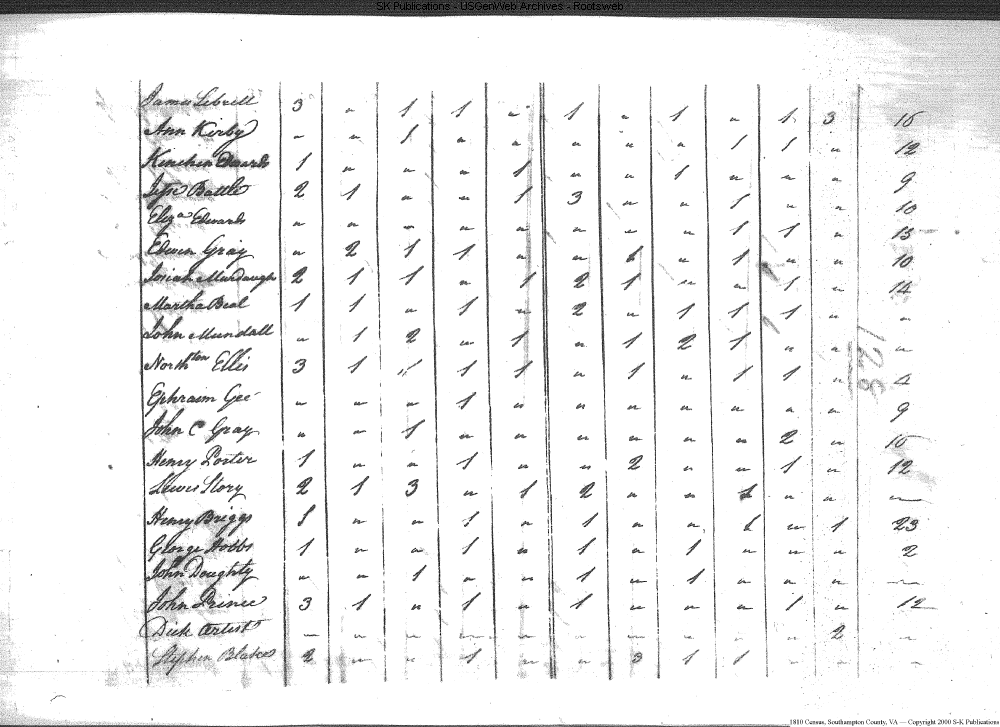 SK Publications - USGenWeb Archives - Rootsweb
James Sebrell 3 " 1 1 " 1 " 1 " 1 3 16
Ann Kirby " " 1 " " " " " 1 1 " 12
Kinchen Edwards 1 " " " 1 " " 1 " " " 9
Jesse Battle 2 1 " " 1 3 " " 1 " " 10
Eliza Edwards " " " " " " " " 1 1 " 13
Edwin Gray " 2 1 1 " " 1 " 1 " " 10
Josiah Murdaugh 2 1 1 " 1 2 1 " " 1 " 14
Martha Beal 1 1 " 1 " 2 " 1 1 1 " "
John Mundall " 1 2 " 1 " 1 2 1 " " "
North ton Ellis 3 1 " 1 1 " 1 " 1 1 " 4
128
Ephraim Gee " " " 1 " " " " " " " 9
John C Gray " " 1 " " " " " " 2 " 16
Henry Porter 1 " " 1 " " 2 " " 1 " 12
Lewis Story 2 1 3 " 1 2 " " 1 " " "
Henry Briggs 1 " " 1 " 1 " " 1 " 1 23
George Hobbs 1 " " 1 " 1 " 1 " " " 2
John Doughty " " 1 " " 1 " 1 " " " "
John Prince 3 1 " 1 " 1 " " " 1 " 12
Dick Artist " " " " " " " " " " 2 "
Stephen Blake 2 " " 1 " " 3 1 1 " " "
1810 Census, Southampton County, VA — Copyright 2000 S-K Publications